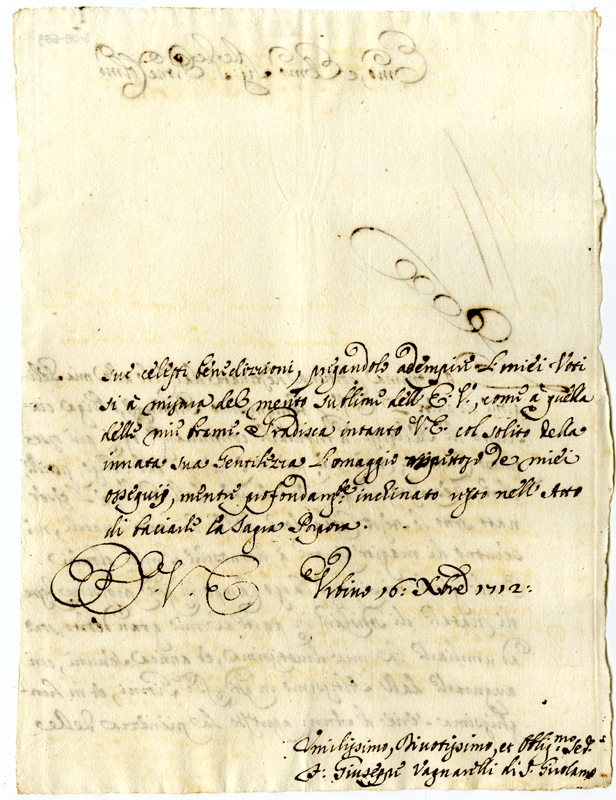 sue celesti benedizzioni, pregandolo adempire li miei Voti
si à misura del merito sublime dell'E. V., come à quella
delle mie brame. Gradisca intanto V. E. col solito della
innata sua Gentilezza l'omaggio rispettoso de miei
ossequij, mentre profondam.te inclinato resto nell'Atto
di baciarle la Sagra Porpora.
D. V. E. Urbino 16: Xbre 1712:
Umilissimo, Divotissimo, et Obligmo. Sed.
F. Giuseppe Vagnarelli di S. Girolamo